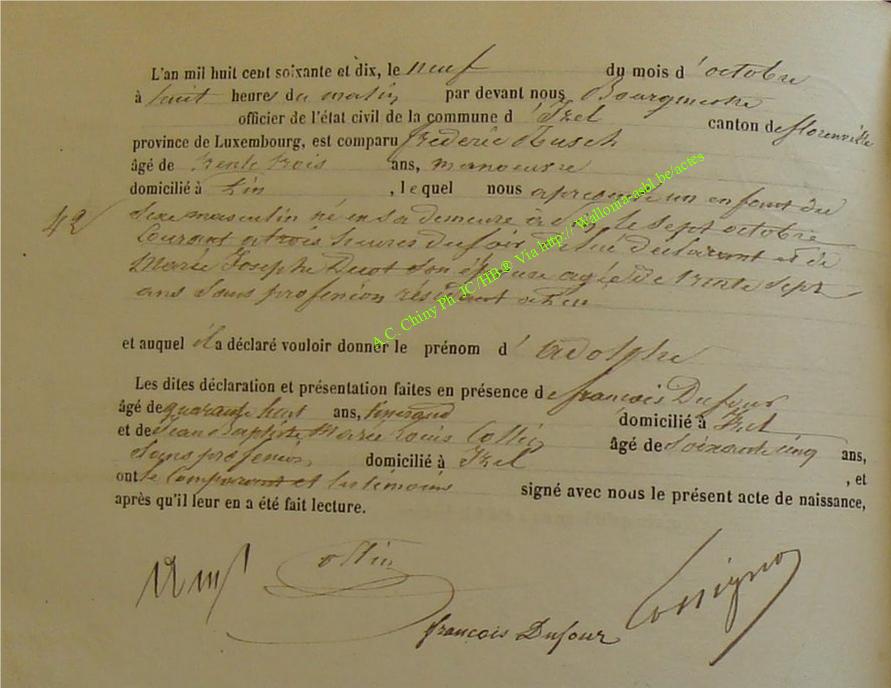 L'an mil huit cent soixante et dix, le neuf du mois d'octobre
à huit heures du matin par devant nous Bourgmestre
officier de l'état civil de la commune d'Izel canton de florenville
province de Luxembourg, est comparu frédéric
âgé de trente trois ans, manoeuvre
domicilié à , lequel nous a présenté un enfant du
42 sexe masculin né en sa demeure à le sept octobre
courant à trois heures du soir de lui déclarant et de
Marie Josephe son épouse agée de trente sept
ans sans profession résidant
et auquel il a déclaré vouloir donner le prénom d'adolphe
Les dites déclaration et présentation faites en présence de françois Dufour
âgé de quarante huit ans, domicilié à Izel
et de Jean Baptiste Marie Louis Collin âgé de soixante cinq ans,
sans profession domicilié à Izel , et
ont le comparant et les témoins signé avec nous le présent acte de naissance,
après qu'il leur en a été fait lecture.
Collin
françois Dufour
A.C. Chiny Ph JC/HB® Via http:// Wallonia-asbl.be/actes